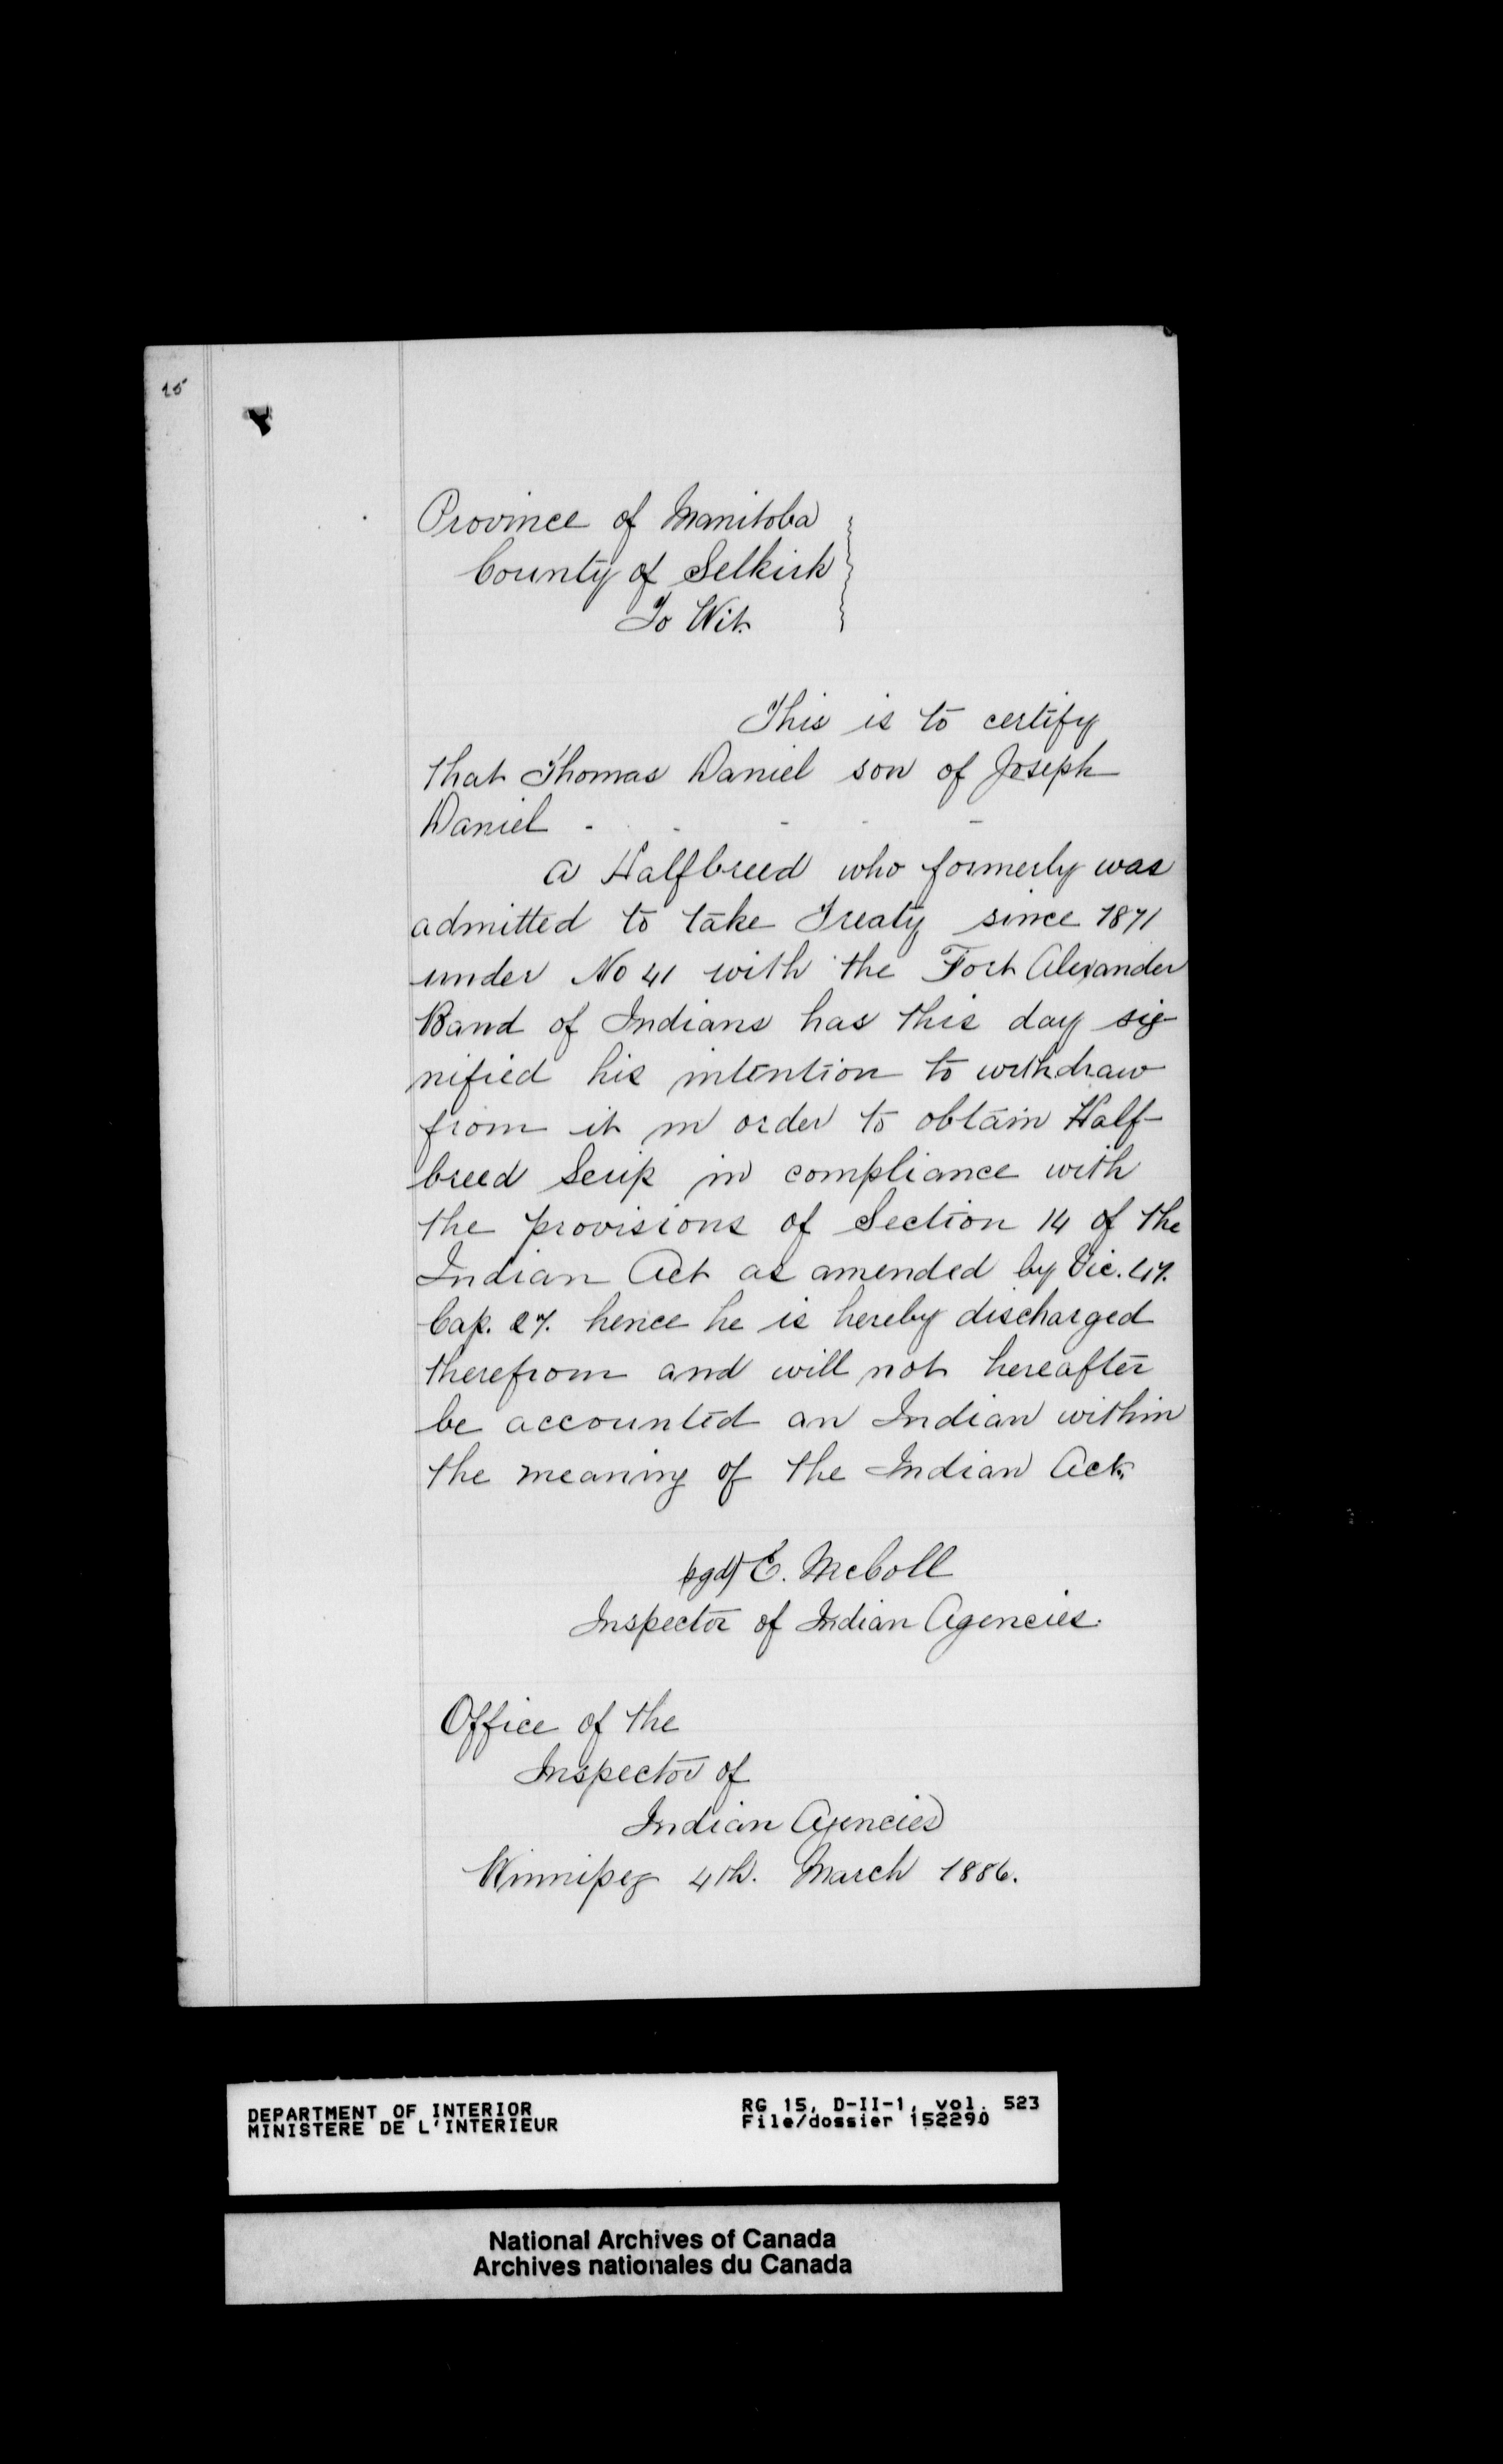 15
Province of Manitoba
County of Selkirk
To Wit.
This is to certify
that Thomas Daniel son of Joseph
Daniel - - - - -
a Halfbreed who formerly was
admitted to take Treaty since 1871
under No 41 with the Fort Alexander
Band of Indians has this day sig-
nified his intention to withdraw
from it in order to obtain Half-
breed Scrip in compliance with
the provisions of Section 14 of the
Indian Act as amended by Vic. 47.
Cap. 27. hence he is hereby discharged
therefrom and will not hereafter
be accounted an Indian within
the meaning of the Indian Act.
(sgd) E. McColl
Inspector of Indian Agencies.
Office of the
Inspector of
Indian Agencies
Winnipeg 4th. March 1886.
DEPARTMENT OF INTERIOR RG 15, D-II-1, vol. 523
MINISTERE DE L'INTERIEUR File/dossier 152290
National Archives of Canada
Archives nationales du Canada